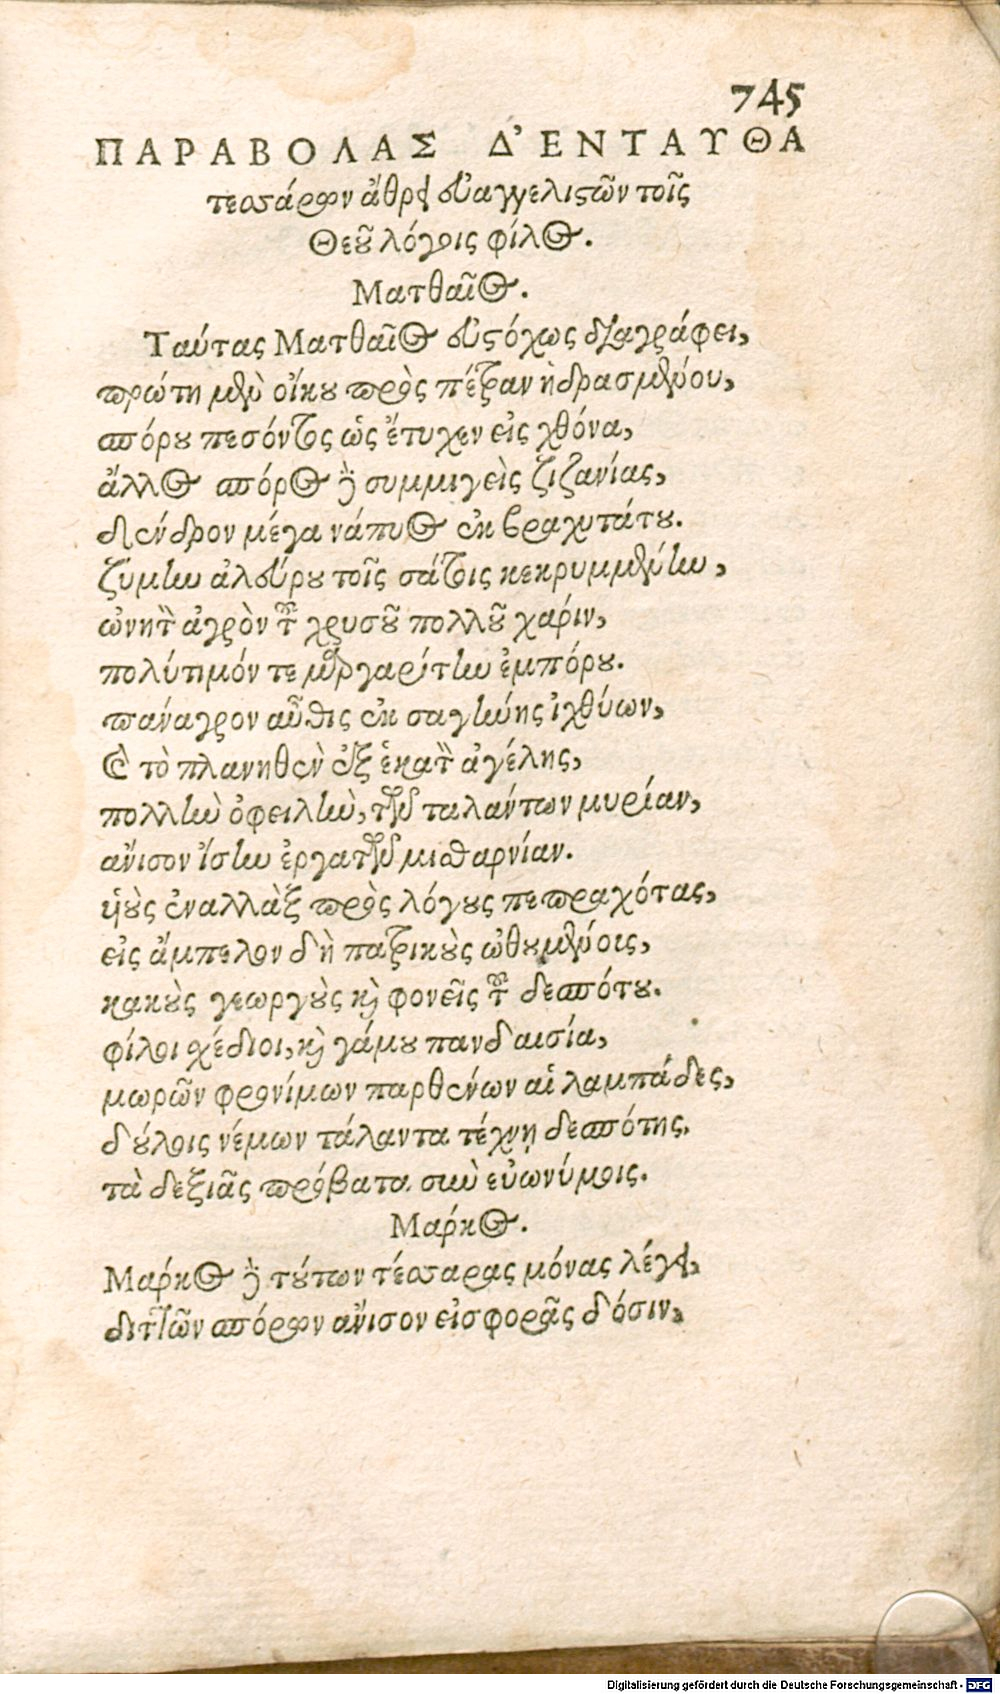 745
ΠΑΡΑΒΟΛΑΣ Δ' ΕΝΤΑΥΘΑ
τεσσάρων ἄθρει εὐαγγελιστῶν τοῖς
Θεοῦ λόγοις φίλος.
Ματθαῖος.
Ταύτας Ματθαῖος εὐστόχως διαγράφει,
πρώτη μὲν οἴκου πρὸς πέτραν ἡδρασμένου,
σπόρου πεσόντος ὡς ἔτυχεν εἰς χθόνα,
ἄλλος σπόρος δὲ συμμιγεὶς ζιζανίας,
δένδρον μέγα νάπυος ἐκ βραχυτάτου.
ζύμην ἀλεύρου τοῖς σάτοις κεκρυμμένην,
ὠνητὸν ἀγρὸν τοῦ χρυσοῦ πολλοῦ χαρίν,
πολύτιμόν τε μαργαρίτην ἐμπόρου.
πάναγρον αὖθις ἐκ σαγήνης ἰχθύων,
καὶ τὸ πλανηθὲν ἐξ ἑκατὸν ἀγέλης,
πολλὴν ὀφειλὴν, τῶν ταλάντων μυρίαν,
ἄνισον ἴσην ἐργατῶν μισθαρνίαν.
υἱοὺς ἐναλλὰξ πρὸς λόγους πεπραχότας,
εἰς ἄμπελον δὴ πατρικοὺς ὠθουμένοις,
κακοὺς γεωργοὺς καὶ φονεῖς τοῦ δεσπότου.
φίλοι σχέδιοι, καὶ γάμου πανδαισία,
μωρῶν φρονίμων παρθένων αἱ λαμπάδες,
δούλοις νέμων τάλαντα τέχνῃ δεσπότης.
τὰ δεξιᾶς πρόβατα σὺν εὐωνύμοις.
Μάρκος.
Μάρκος δὲ τούτων τέσσαρας μόνας λέγει,
διττῶν σπόρων ἄνισον εἰσφορᾶς δόσιν,
Digitalisierung gefördert durch die Deutsche Forschungsgemeinschaft - DFG